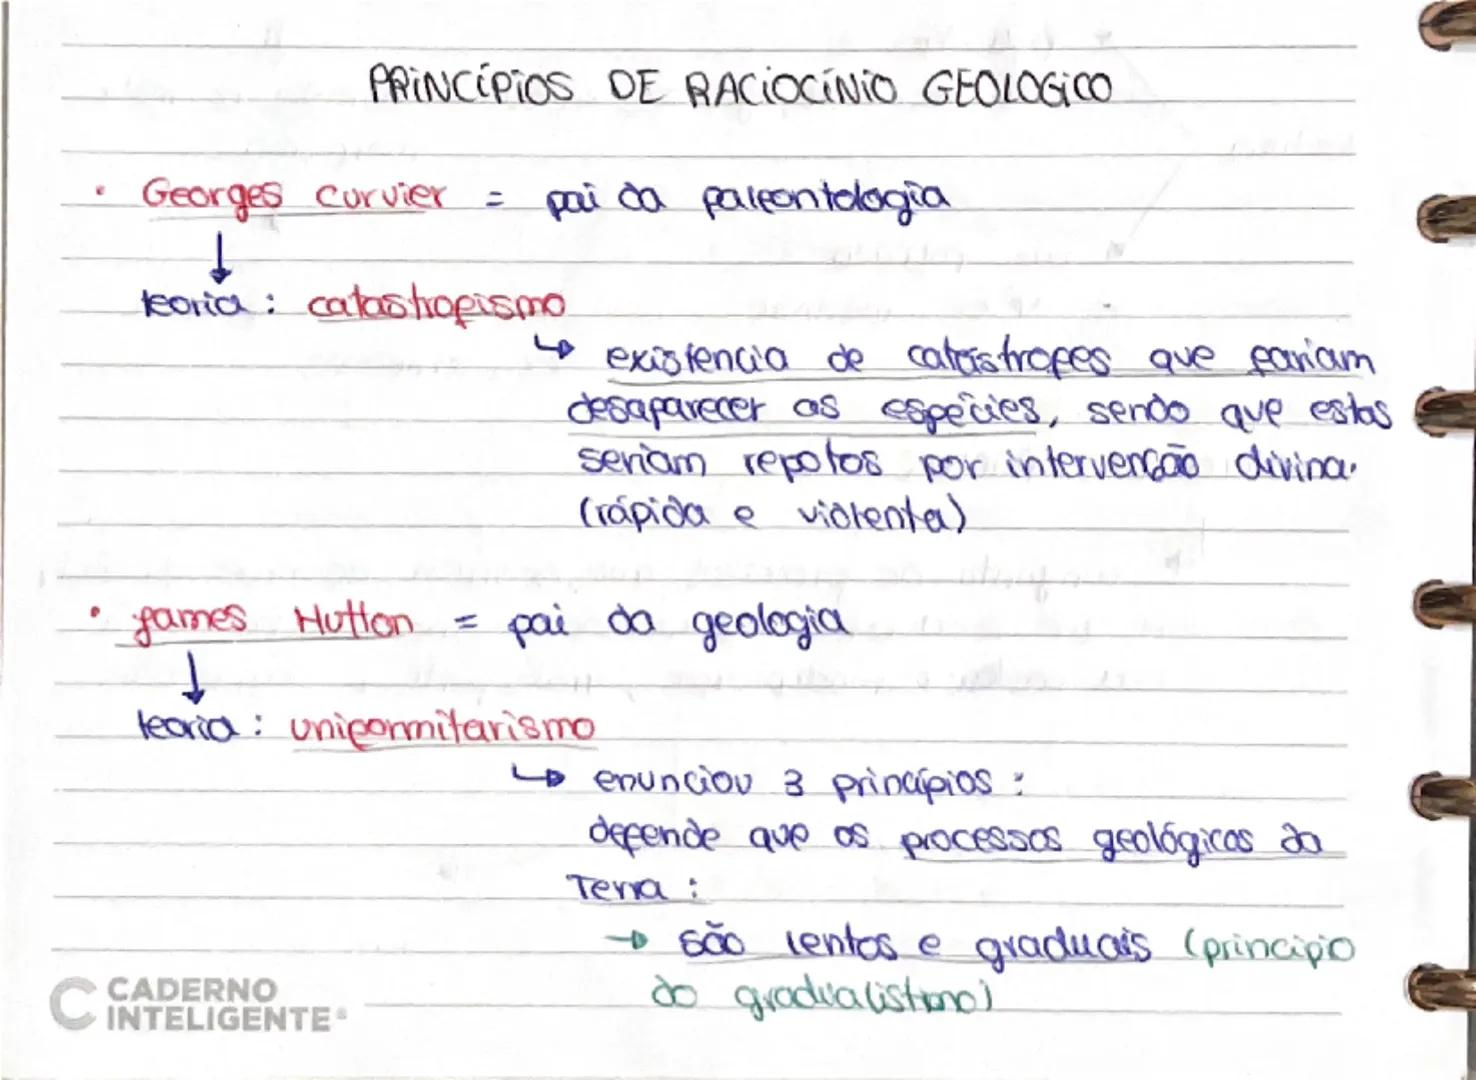 PRINCÍPIOS DE RACIOCÍNIO GEOLOGICO
• Georges Curvier = pai da paleontologia
↓
teoria : catastrofismo
↳ existencia de catástrofes que fariam
desaparecer as espécies, sendo que estas
seriam repotos por intervenção divina.
(rápida e violenta)
• James Hutton = pai da geologia
↓
teoria : uniformitarismo
↳ enunciou 3 princípios :
defende que os processos geológicos da
Terra :
→ são lentos e graduais (principio
do gradualistmo)
CADERNO
INTELIGENTE®